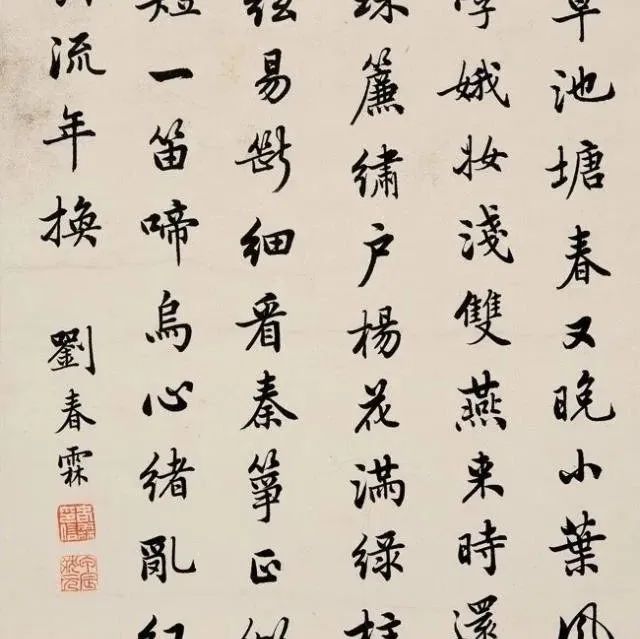 草池塘春又晚小葉風
學娥妝淺雙燕来時還
珠簾繡户楊花滿綠柱
絃易斷細看秦箏正似
短一笛啼烏心緒亂紅
流年換
劉春霖